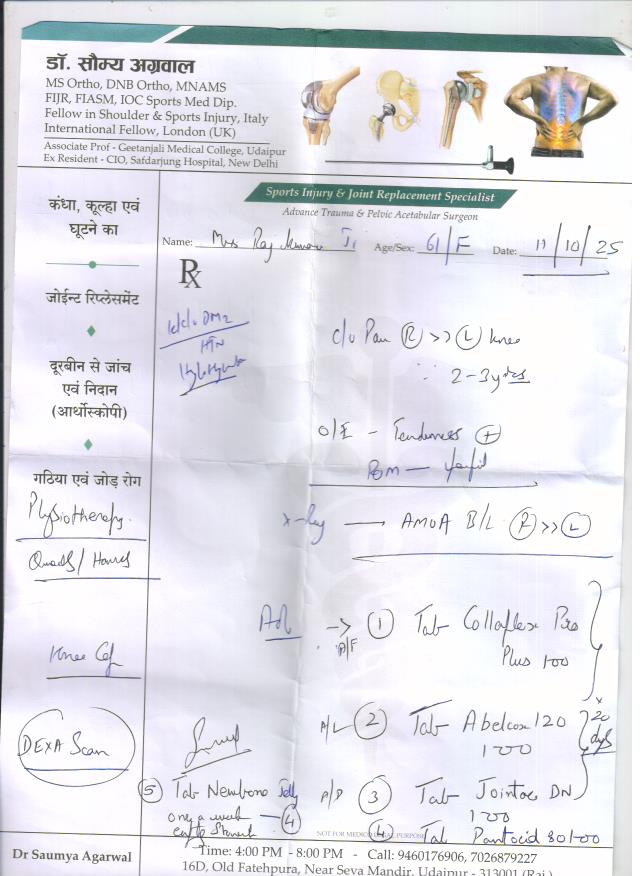 डॉ. सौम्य अग्रवाल
MS Ortho, DNB Ortho, MNAMS
FIJR, FIASM, IOC Sports Med Dip.
Fellow in Shoulder & Sports Injury, Italy
International Fellow, London (UK)
Associate Prof - Geetanjali Medical College, Udaipur
Ex Resident - CIO, Safdarjung Hospital, New Delhi
Sports Injury & Joint Replacement Specialist
Advance Trauma & Pelvic Acetabular Surgeon
Name: Mrs Raj Age/Sex: 61/F Date: 11/10/25
Rx
कंधा, कूल्हा एवं
घूटने का
जोईन्ट रिप्लेसमेंट
दूरबीन से जांच
एवं निदान
(आर्थोस्कोपी)
गठिया एवं जोड़ रोग
K/C/O DM2
HTN
C/o Pain R >> L knee
2-3 yrs
O/E - Tenderness +
ROM —
Physiotherapy
Quads / Hams
X-Ray — B/L R >> L
Knee Cap
DEXA Scan
Adv
→ 1 Tab Collaflex Pro
Plus 100
A/F
A/L 2 Tab Abelcox 120
100
3 Tab DN
100
x 20 days
4 Tab Pantocid 80 100
5 Tab Newbona
once a week — 4
empty stomach
NOT FOR MEDICO LEGAL PURPOSE
Dr Saumya Agarwal
Time: 4:00 PM - 8:00 PM - Call: 9460176906, 7026879227
16D, Old Fatehpura, Near Seva Mandir, Udaipur - 313001 (Raj.)